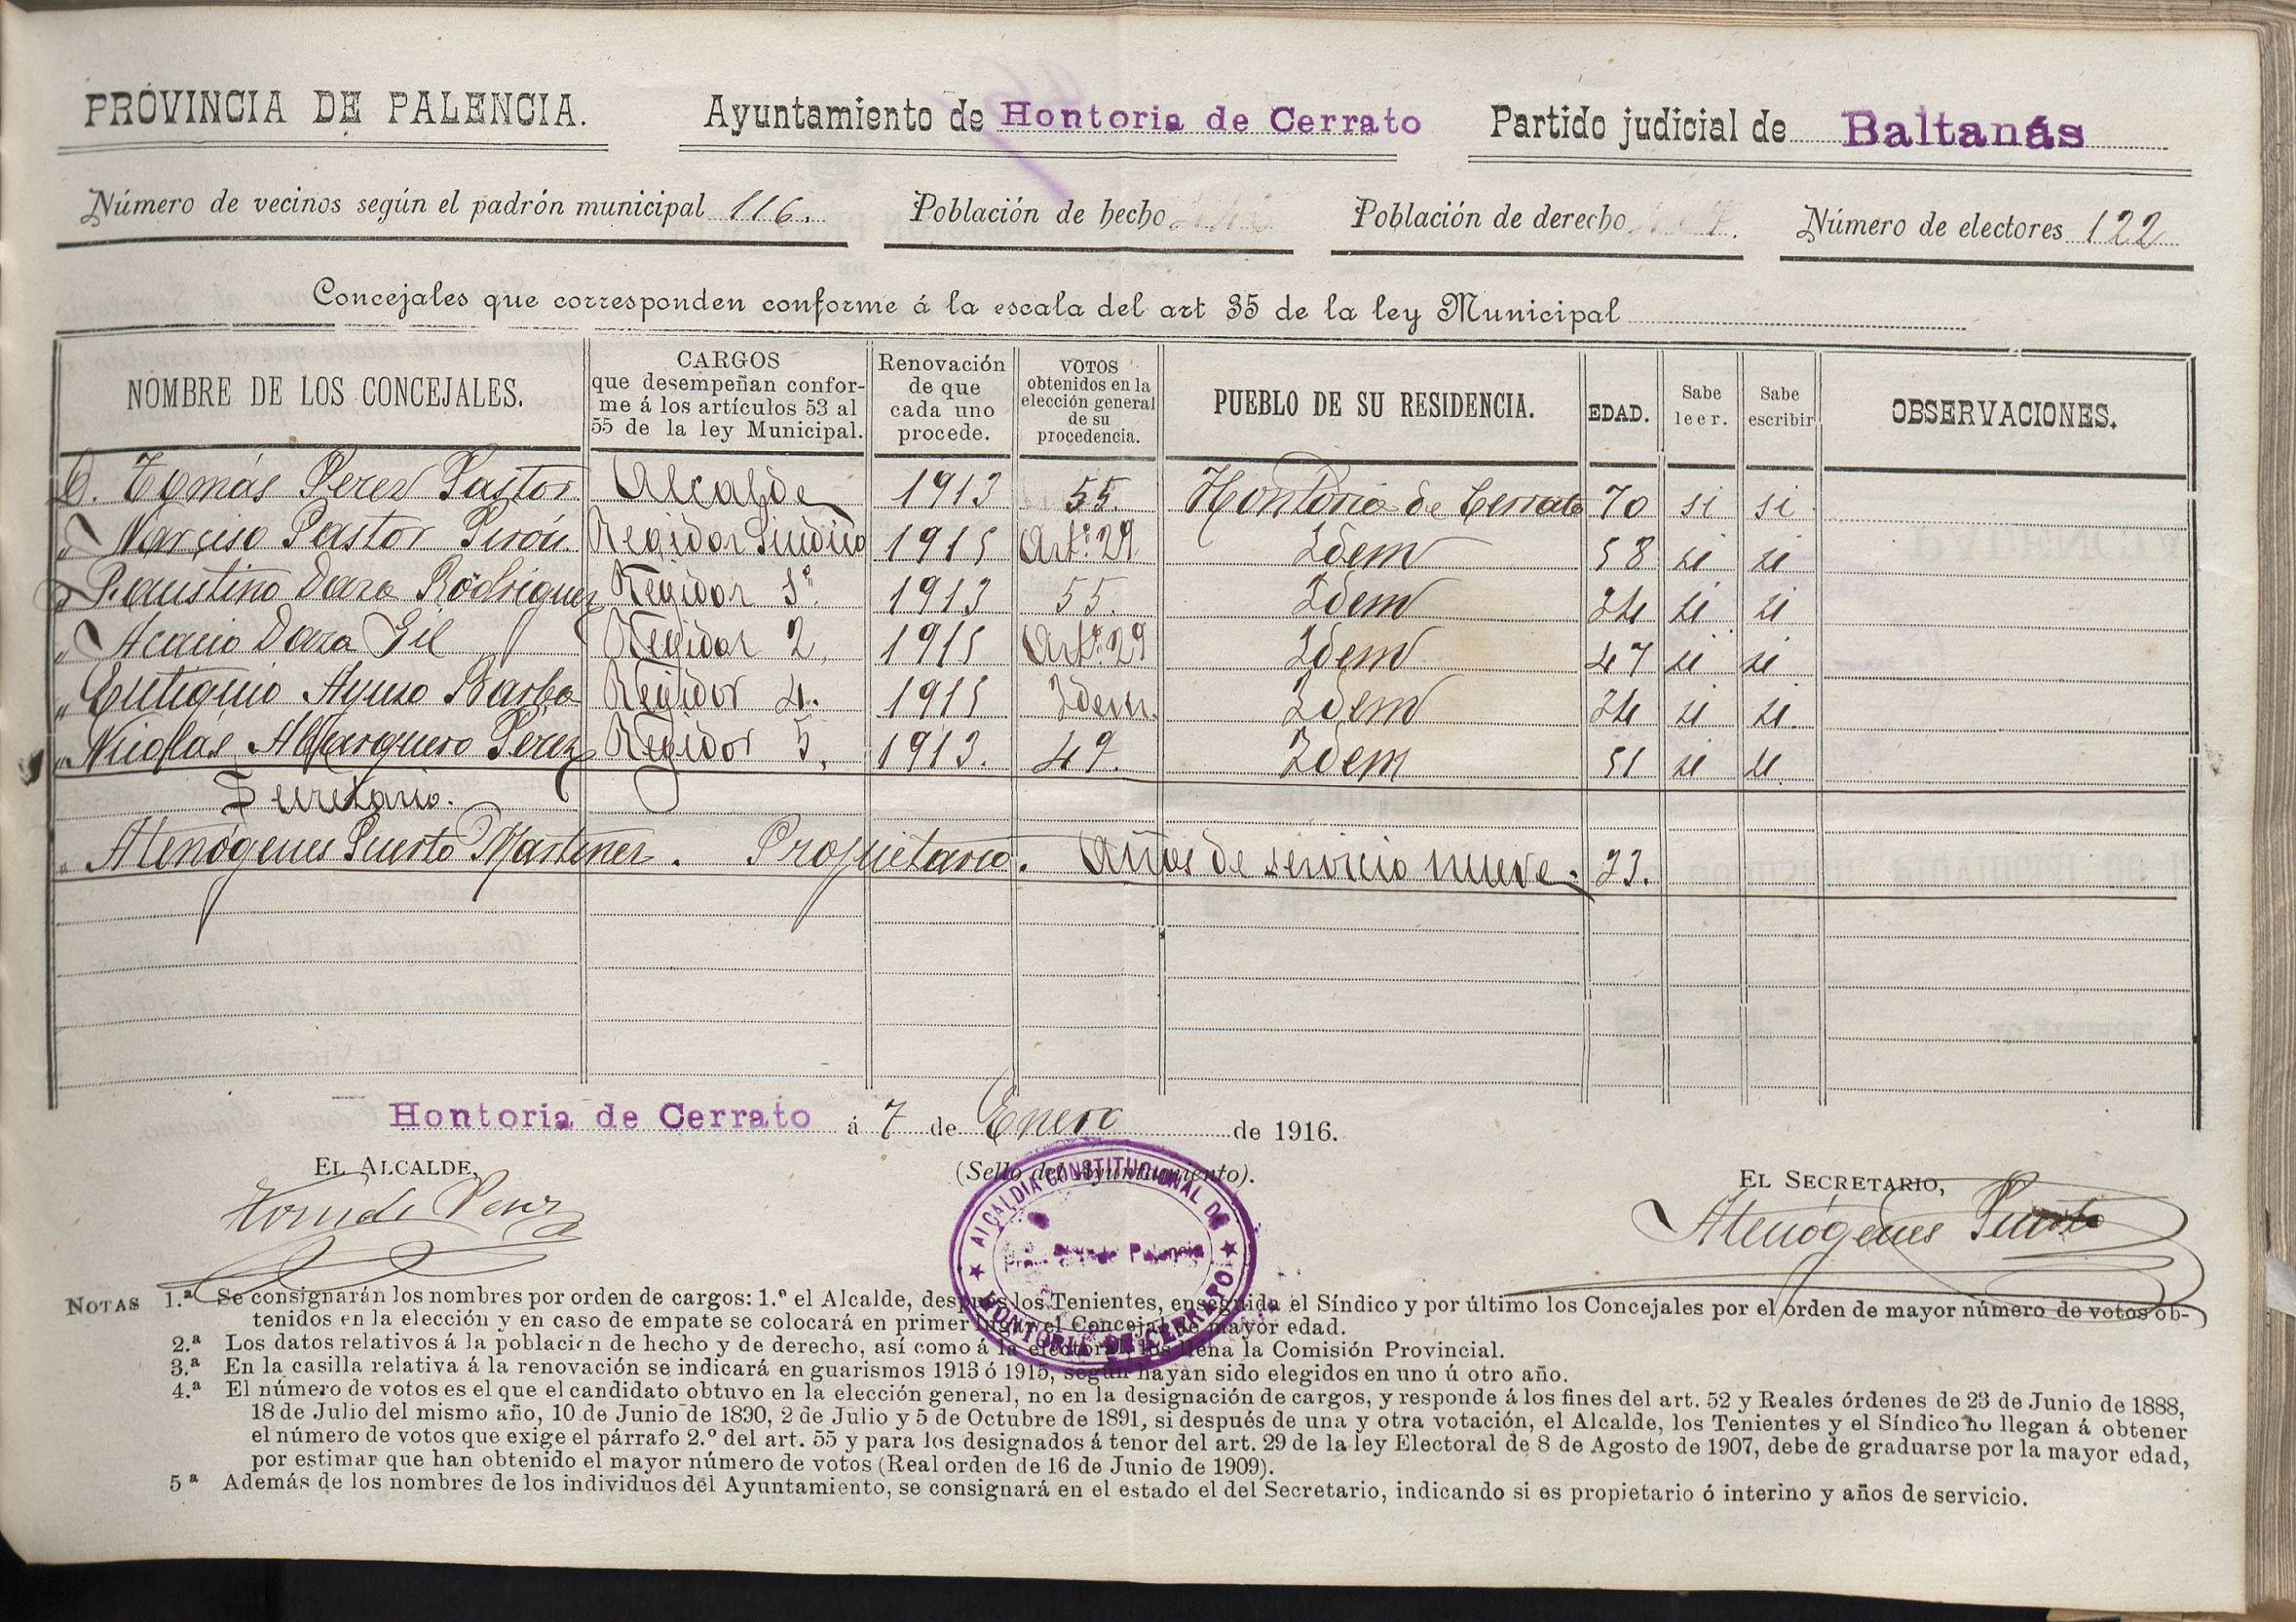 PROVINCIA DE PALENCIA. Ayuntamiento de Hontoria de Cerrato Partido judicial de Baltanás
Número de vecinos según el padrón municipal 116. Población de hecho Población de derecho Número de electores 122
Concejales que corresponden conforme á la escala del art 35 de la ley Municipal
NOMBRE DE LOS CONCEJALES. CARGOS que desempeñan conforme á los artículos 53 al 55 de la ley Municipal. Renovación de que cada uno procede. VOTOS obtenidos en la elección general de su procedencia. PUEBLO DE SU RESIDENCIA. EDAD. Sabe leer. Sabe escribir OBSERVACIONES.
D. Tomás Perez Pastor Alcalde 1913 55. Hontoria de Cerrato 70 si si
" Narciso Pastor Regidor Sindico 1915 Artº. 29 Idem 58 si si
" Faustino Daza Rodriguez Regidor 1º. 1913 55. Idem 34 si si
" Acacio Daza Gil Regidor 2. 1915 Artº. 29 Idem 47 si si
" Eutiquio Ayuso Barba Regidor 4. 1915 Idem. Idem 34 si si
" Nicolás Albarquero Pérez Regidor 5. 1913. 49. Idem 51 si si
Secretario.
" Atenógenes Puerto Martinez. Propietario. Años de servicio nueve. 33.
Hontoria de Cerrato á 7 de Enero de 1916.
EL ALCALDE, (Sello del Ayuntamiento). EL SECRETARIO,
Perez Atenógenes Puerto
ALCALDIA CONSTITUCIONAL DE
HONTORIA DE CERRATO
NOTAS 1.ª Se consignarán los nombres por orden de cargos: 1.º el Alcalde, después los Tenientes, enseguida el Síndico y por último los Concejales por el orden de mayor número de votos ob-
tenidos en la elección y en caso de empate se colocará en primer lugar el Concejal de mayor edad.
2.ª Los datos relativos á la población de hecho y de derecho, así como á la electoral, los llena la Comisión Provincial.
3.ª En la casilla relativa á la renovación se indicará en guarismos 1913 ó 1915, según hayan sido elegidos en uno ú otro año.
4.ª El número de votos es el que el candidato obtuvo en la elección general, no en la designación de cargos, y responde á los fines del art. 52 y Reales órdenes de 23 de Junio de 1888,
18 de Julio del mismo año, 10 de Junio de 1890, 2 de Julio y 5 de Octubre de 1891, si después de una y otra votación, el Alcalde, los Tenientes y el Síndico no llegan á obtener
el número de votos que exige el párrafo 2.º del art. 55 y para los designados á tenor del art. 29 de la ley Electoral de 8 de Agosto de 1907, debe de graduarse por la mayor edad,
por estimar que han obtenido el mayor número de votos (Real orden de 16 de Junio de 1909).
5ª Además de los nombres de los individuos del Ayuntamiento, se consignará en el estado el del Secretario, indicando si es propietario ó interino y años de servicio.